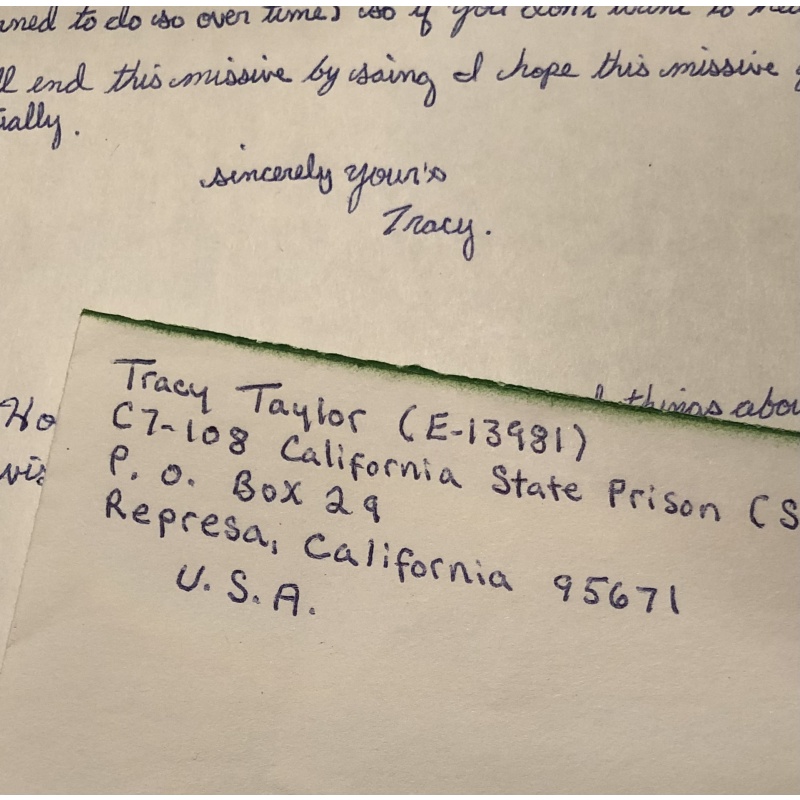 to do so over time) so if you don't want to
end this missive by saing I hope this missive
sincerely your's
Tracy.
things
Tracy Taylor (E-13981)
C7-108 California State Prison (S
P. O. Box 29
Represa, California 95671
U. S. A.